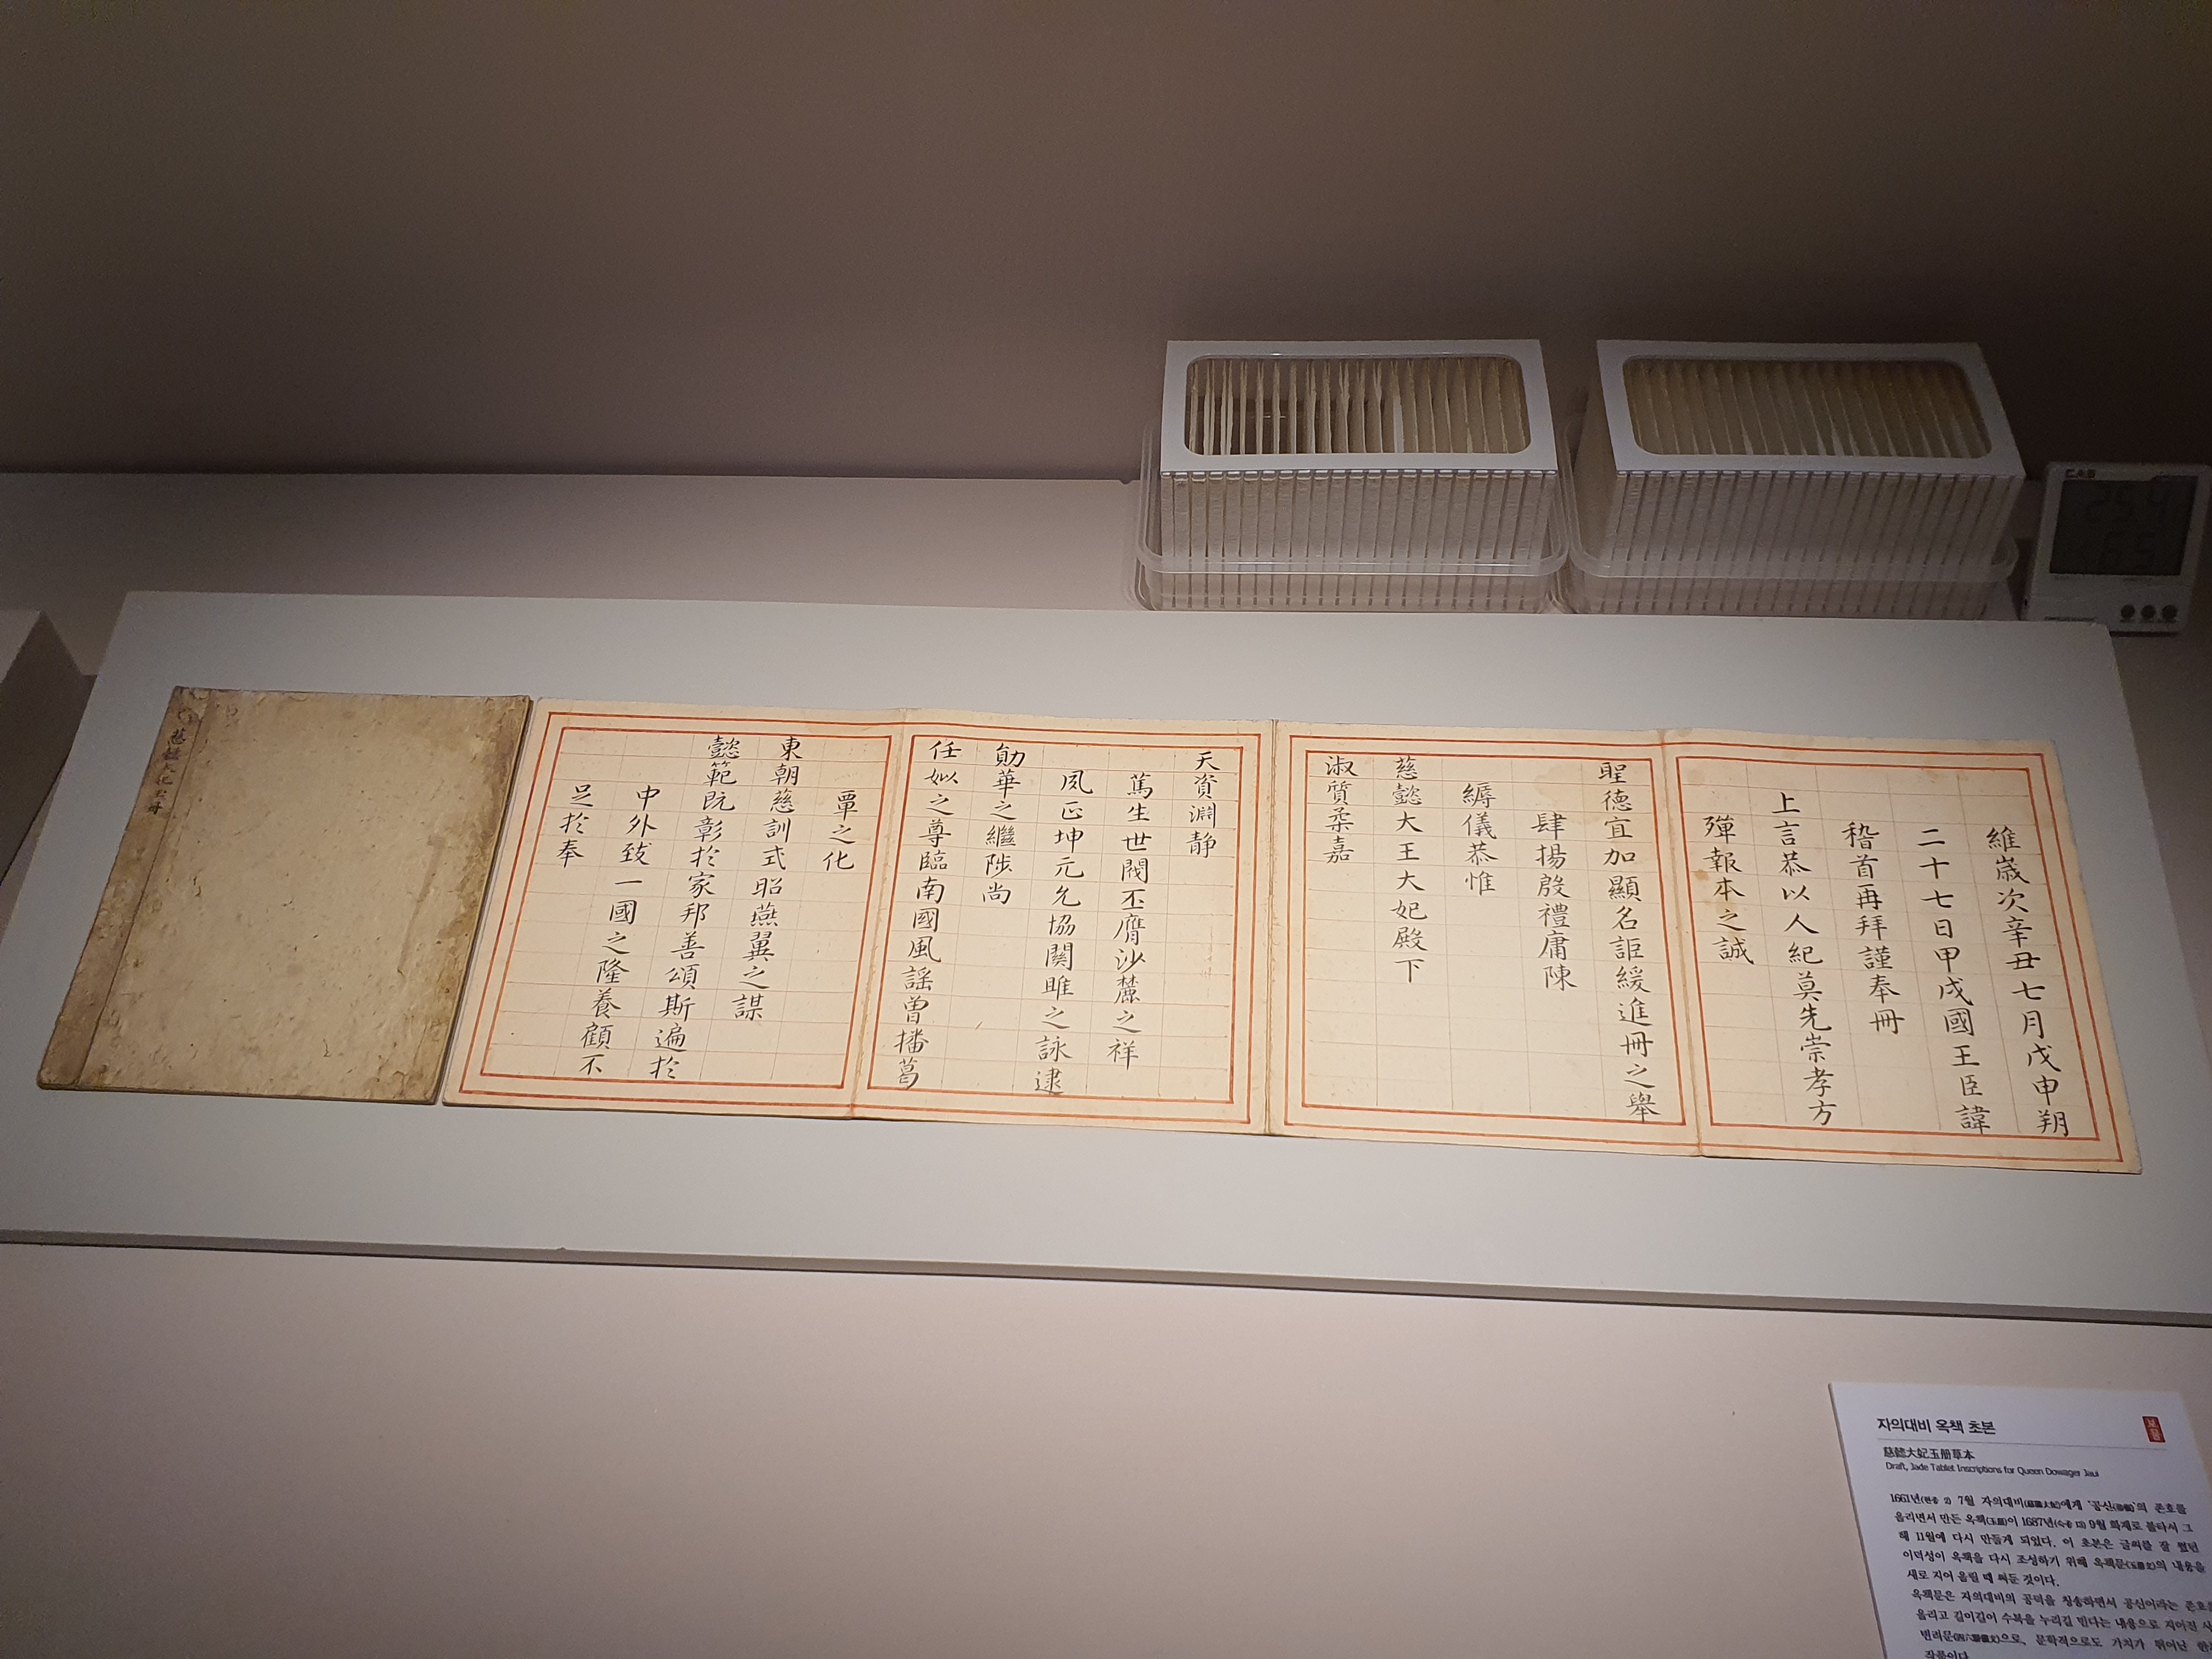 維歲次辛丑七月戊申朔
二十七日甲戌國王臣諱
稽首再拜謹奉冊
上言恭以人紀莫先崇孝方
殫報本之誠
聖德宜加顯名詎緩進冊之舉
肆揚殷禮庸陳
縟儀恭惟
慈懿大王大妃殿下
淑質柔嘉
天資淵靜
篤生世閥丕膺沙麓之祥
夙正坤元允協關雎之詠逮
勛華之繼陟尚
任姒之尊臨南國風謠曾播葛
覃之化
東朝慈訓式昭燕翼之謀
懿範旣彰於家邦善頌斯遍於
中外致一國之隆養顧不
足於奉
CAS
자의대비 옥책 초본
보물
慈懿大妃玉冊草本
Draft, Jade Tablet Inscriptions for Queen Dowager Jaui
1661년(현종 2) 7월 자의대비에게 '공신'의 존호를
올리면서 만든 옥책(玉冊)이 1687년(숙종 13) 9월 화재로 불타서 그
해 11월에 다시 만들게 되었다. 이 초본은 글씨를 잘 썼던
이덕성이 옥책을 다시 조성하기 위해 옥책문의 내용을
새로 지어 올릴 때 써둔 것이다.
옥책문은 자의대비의 공덕을 칭송하면서 공신이라는 존호를
올리고 길이길이 수복을 누리길 빈다는 내용으로 지어진 사
변려문으로, 문학적으로도 가치가 뛰어난
작품이다.